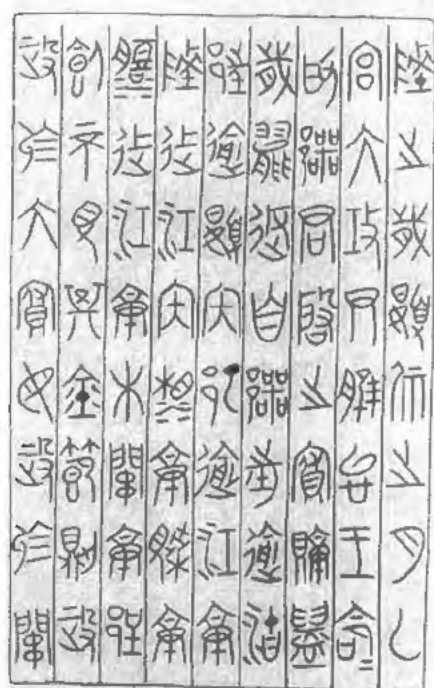 陵之歲夏之月乙
宮大攻尹脽台王命
為鄂君啟之府賡鑄
歲返自鄂往逾湖
逾夏内逾江庚
陵上江内湘庚庚
上江庚木關庚郢
飤不見其金節則政
政於大府毋政於關